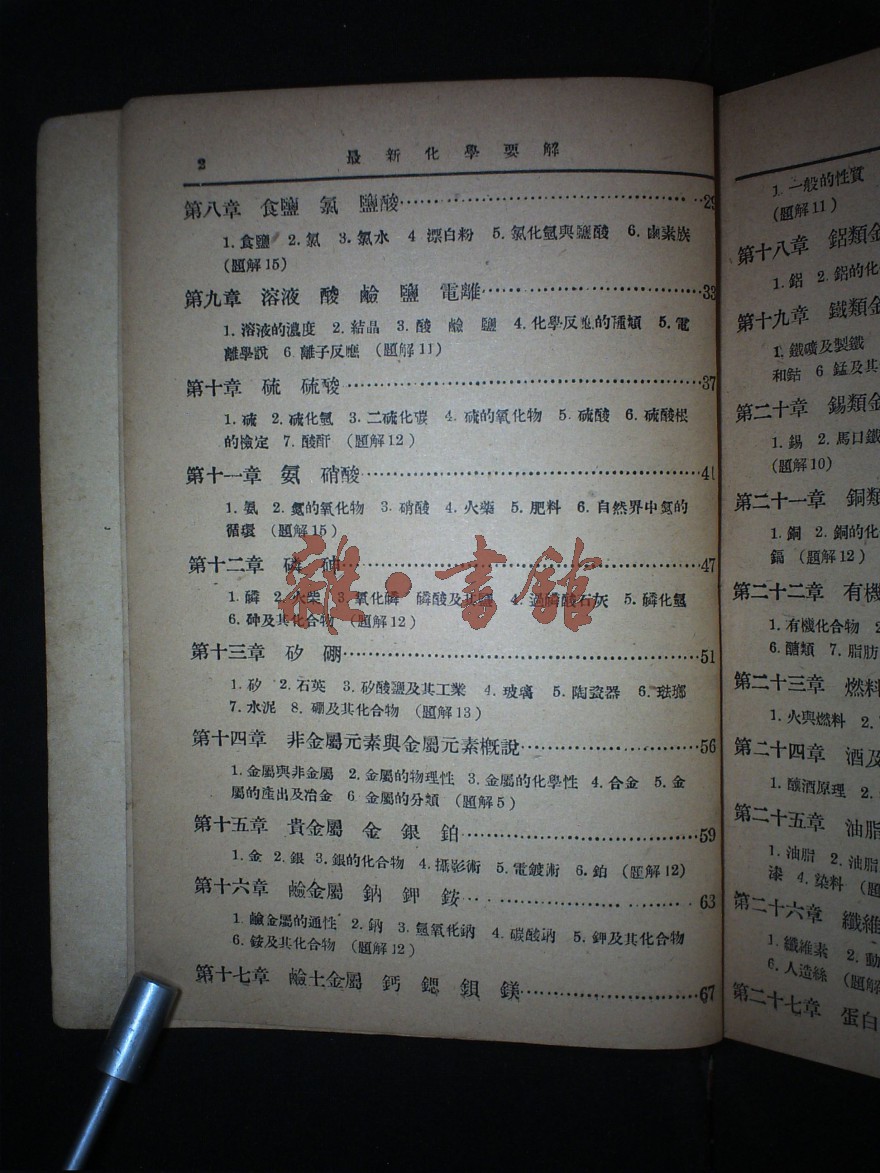 2
最新化學要解
第八章 食鹽 氯 鹽酸 29
1. 食鹽 2. 氯 3. 氯水 4 漂白粉 5. 氯化氫與鹽酸 6. 鹵素族
(題解15)
第九章 溶液 酸 鹼 鹽 電離 33
1. 溶液的濃度 2. 結晶 3. 酸 鹼 鹽 4. 化學反應的種類 5. 電
離學說 6. 離子反應 (題解11)
第十章 硫 硫酸 37
1. 硫 2. 硫化氫 3. 二硫化碳 4. 硫的氧化物 5. 硫酸 6. 硫酸根
的檢定 7. 酸酐 (題解12)
第十一章 氨 硝酸 41
1. 氨 2. 氮的氧化物 3. 硝酸 4. 火藥 5. 肥料 6. 自然界中氮的
循環 (題解15)
第十二章 磷 砷 47
1. 磷 2. 火柴 3. 氧化磷 磷酸及其鹽 4. 過磷酸石灰 5. 磷化氫
6. 砷及其化合物 (題解12)
第十三章 矽 硼 51
1. 矽 2. 石英 3. 矽酸鹽及其工業 4. 玻璃 5. 陶瓷器 6. 琺瑯
7. 水泥 8. 硼及其化合物 (題解13)
第十四章 非金屬元素與金屬元素概說 56
1. 金屬與非金屬 2. 金屬的物理性 3. 金屬的化學性 4. 合金 5. 金
屬的產出及冶金 6 金屬的分類 (題解5)
第十五章 貴金屬 金 銀 鉑 59
1. 金 2. 銀 3. 銀的化合物 4. 攝影術 5. 電鍍術 6. 鉑 (題解12)
第十六章 鹼金屬 鈉 鉀 銨 63
1. 鹼金屬的通性 2. 鈉 3. 氫氧化鈉 4. 碳酸鈉 5. 鉀及其化合物
6. 銨及其化合物 (題解12)
第十七章 鹼土金屬 鈣 鍶 鋇 鎂 67
雜·書館
1. 一般的性質
(題解11)
第十八章 鋁類金
1. 鋁 2. 鋁的化
第十九章 鐵類金
1. 鐵礦及製鐵
和鈷 6 錳及其
第二十章 錫類金
1. 錫 2. 馬口鐵
(題解10)
第二十一章 銅類
1. 銅 2. 銅的化
鎘 (題解12)
第二十二章 有機
1. 有機化合物 2
6. 醣類 7. 脂肪
第二十三章 燃料
1. 火與燃料 2.
第二十四章 酒及
1. 釀酒原理 2.
第二十五章 油脂
1. 油脂 2. 油脂
漆 4. 染料 (題
第二十六章 纖維
1. 纖維素 2. 動
6. 人造絲 (題解
第二十七章 蛋白